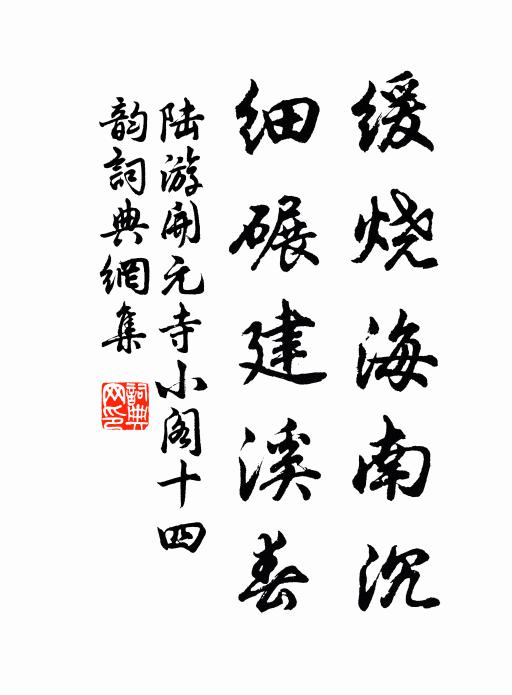 缓烧海南沉
细碾建溪春
陆游開元寺小阁十四
韵詞典網集
詞典网印